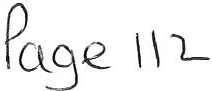 Page 112